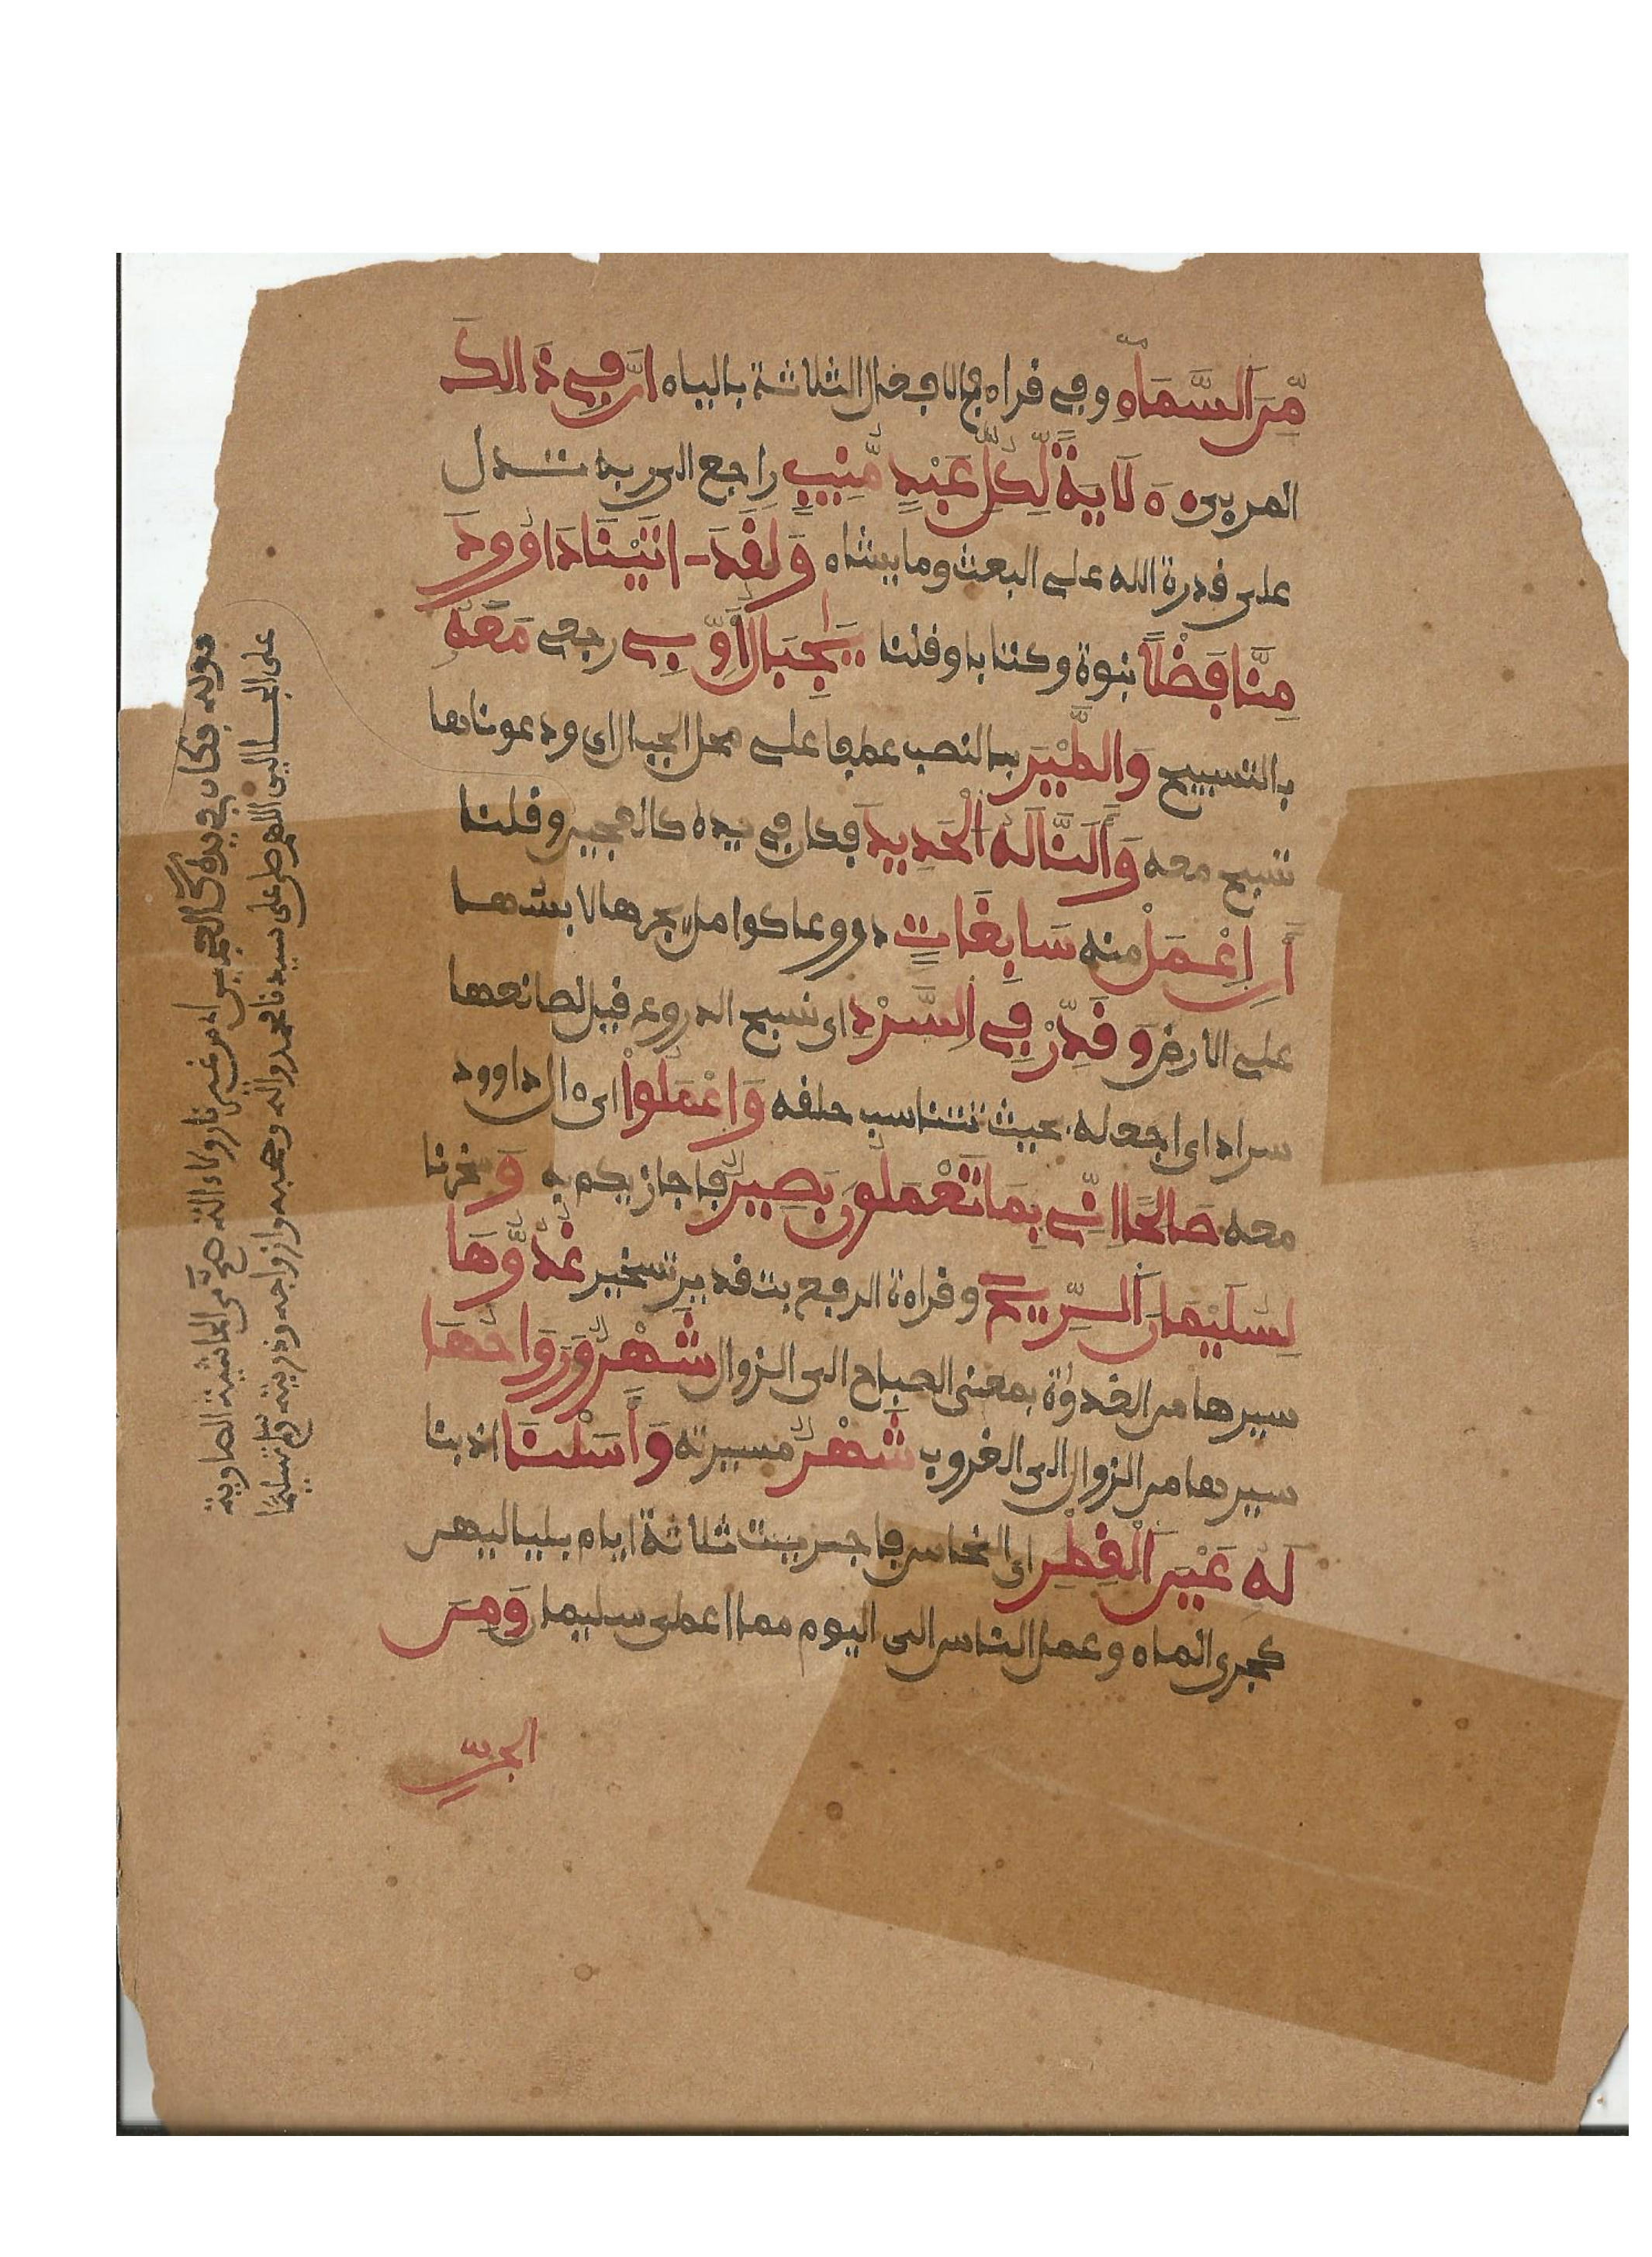 مِّنَ اَلسَّمَاءِ وفي قراءة في الافعال الثلاثة بالياء اِنَّ فِي ذَالِكَ
المرءي ءَلَايَةً لِّكُلِّ عَبْدٍ مُّنِيبٍ راجع الى ربه تدل
على قدرة الله على البعث وما يشاء وَلَقَدَ - اتَيْنَا دَاوُودَ
مِنَّا فَضْلًا نبوة وكتابا وقلنا يَجِبَالُ أَوِّبِے رجعى مَعَهُ
بالتسبيح وَالطَّيْرَ بالنصب عطفا على محل الجبال اى ودعوناها
تسبح معه وَأَلَنَّا لَهُ اَلْحَدِيدَ فكان في يده كالعجين وقلنا
أَنِ اِعْمَلْ منه سَابِغَاتٍ دروعا كوامل يجرها لابسها
على الارض وَقَدِّرْ فِے اِلسَّرْدِ اى نسج الدروع قيل لصانعها
سراد اى اجعله بحيث تتناسب حلقه وَاعْمَلُواْ اى ءال داوود
معه صَالِحًا اِنِّے بِمَا تَعْمَلُونَ بَصِيرٌ فاجازيكم به وَ سخرنا
لِسُلَيْمَانَ اَلرِّيحَ وقراءة الرفع بتقدير تسخير غُدُوُّهَا
سيرها من الغدوة بمعنى الصباح الى الزوال شَهْرٌ وَرَوَاحُهَا
سيرها من الزوال الى الغروب شَهْرٌ مسيرته وَأَسَلْنَا اذبنا
لَهُ عَيْنَ اَلْقِطْرِ اى النحاس فاجريت ثلاثة ايام بلياليهن
كجرى الماء وعمل الناس الى اليوم مما اعطى سليمان وَمِنَ
الجِنِّ
قوله فكان في يده كالعجين اى من غير نار وكاءالة صح من الحاشية الصاوية
على الجلالين اللهم صل على سيدنا محمد وءاله وصحبه وازواجه وذريته وسلم تسليما